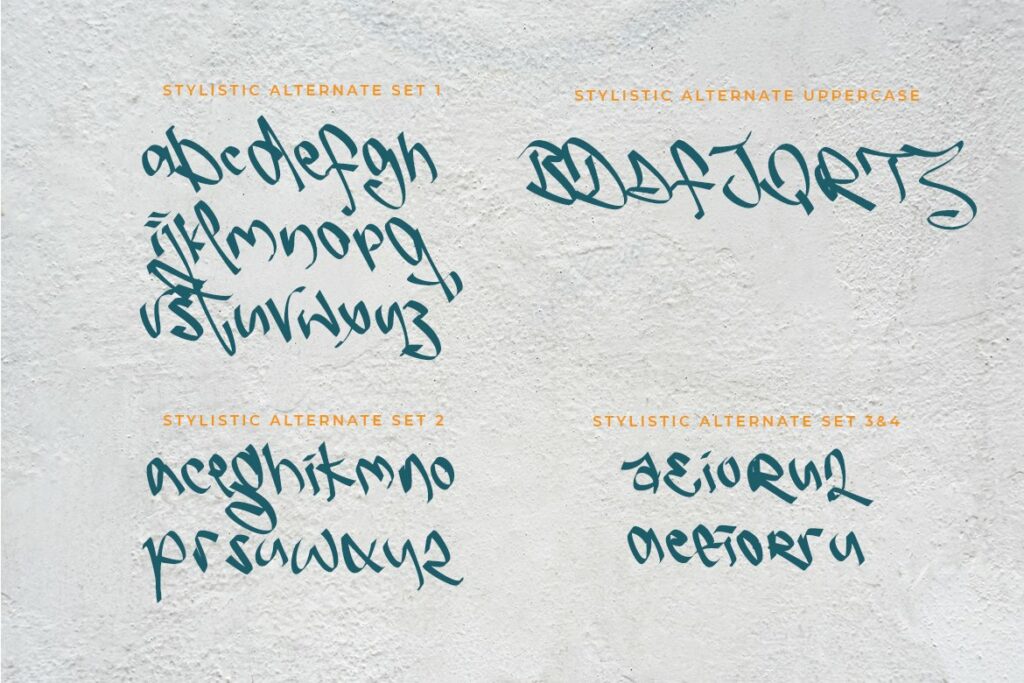 STYLISTIC ALTERNATE SET 1
abcdefgh
ijklmnopq
rstuvwxyz
STYLISTIC ALTERNATE UPPERCASE
BDAFJQRTZ
STYLISTIC ALTERNATE SET 2
aceghikmno
prsuwxyz
STYLISTIC ALTERNATE SET 3&4
aeioruz
aeeiorru